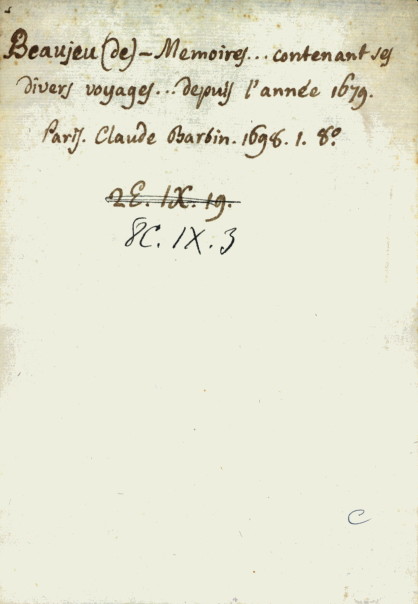 Beaujeu (de) – Memoires... contenant ses
divers voyages... depuis l'année 1679.
Paris. Claude Barbin. 1698. 1. 8º
2E. IX. 19.
8C. IX. 3
C